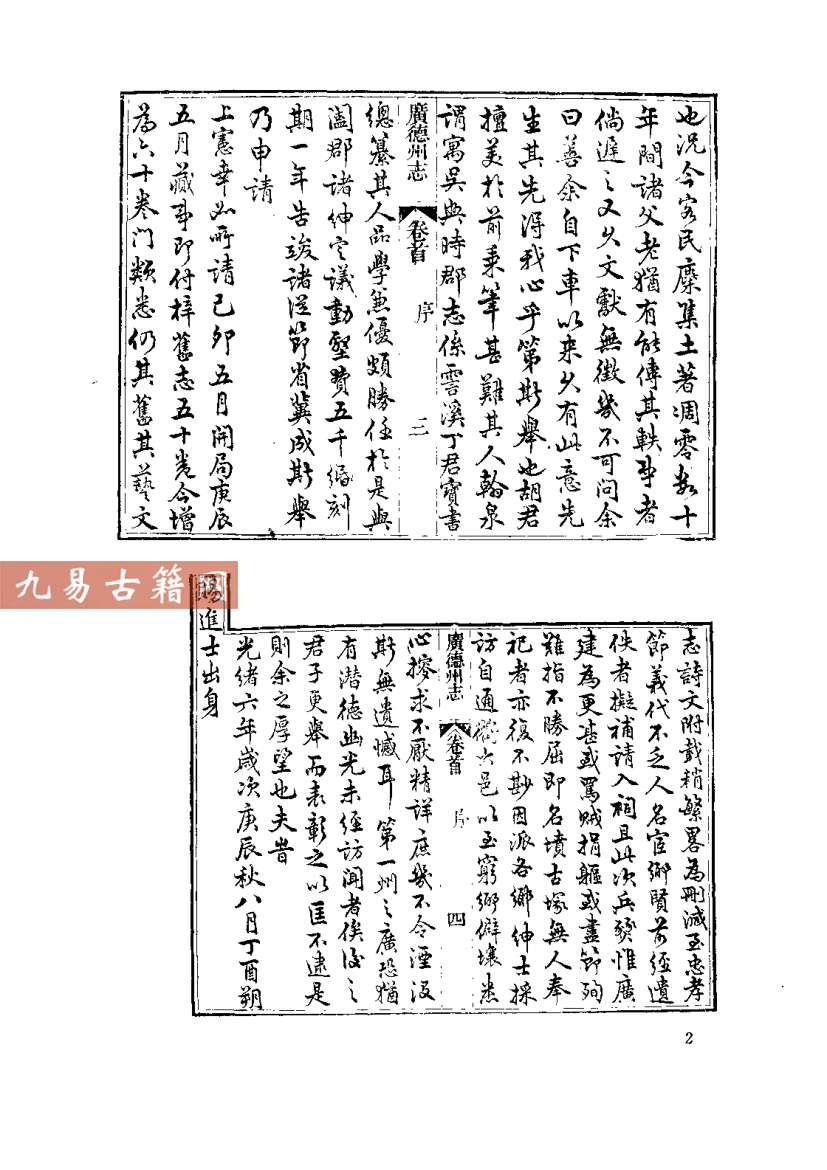 也況今客民麇集土著凋零数十
年間諸父老猶有能傳其軼事者
倘遲之又久文獻無徵幾不可問余
曰善余自下車以来久有此意先
生其先得我心乎第斯舉也胡君
擅美於前秉筆甚難其人翰泉
謂寓吴興時郡志係雲溪丁君寶書
廣德州志 卷首 序 三
總纂其人品學兼優頗勝任於是與
闔郡諸紳定議動墾費五千緡刻
期一年告竣諸從節省冀成斯舉
乃申請
上憲幸如所請己卯五月開局庚辰
五月蕆事即付梓舊志五十卷今增
為六十卷门類悉仍其舊其藝文
志詩文附載稍繁畧為刪減至忠孝
節義代不乏人名宦鄉賢前經遺
佚者擬補請入祠且此次兵燹惟廣
建為更甚或罵贼捐軀或盡節殉
難指不勝屈即名墳古塚無人奉
祀者亦復不尠因派各鄉紳士採
訪自通衢大邑以至窮鄉僻壤悉
廣德州志 卷首 序 四
心搜求不厭精詳庶幾不令湮没
斯無遺憾耳第一州之廣恐猶
有潜德幽光未經訪聞者俟後之
君子更舉而表彰之以匡不逮是
則余之厚望也夫旹
光緒六年歲次庚辰秋八月丁酉朔
賜進士出身
九易古籍网
2